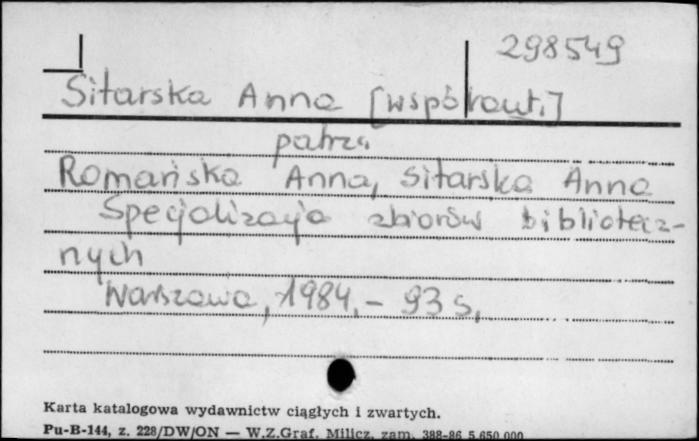 298549
Sitarska Anna [współaut.]
patrz:
Romańska Anna, Sitarska Anna
Specjalizacja zbiorów bibliotecz-
nych
Warszawa, 1984. - 93 s.
Karta katalogowa wydawnictw ciągłych i zwartych.
Pu-B-144, z. 228/DW/ON — W.Z.Graf. Milicz, zam. 388-86 5 650 000